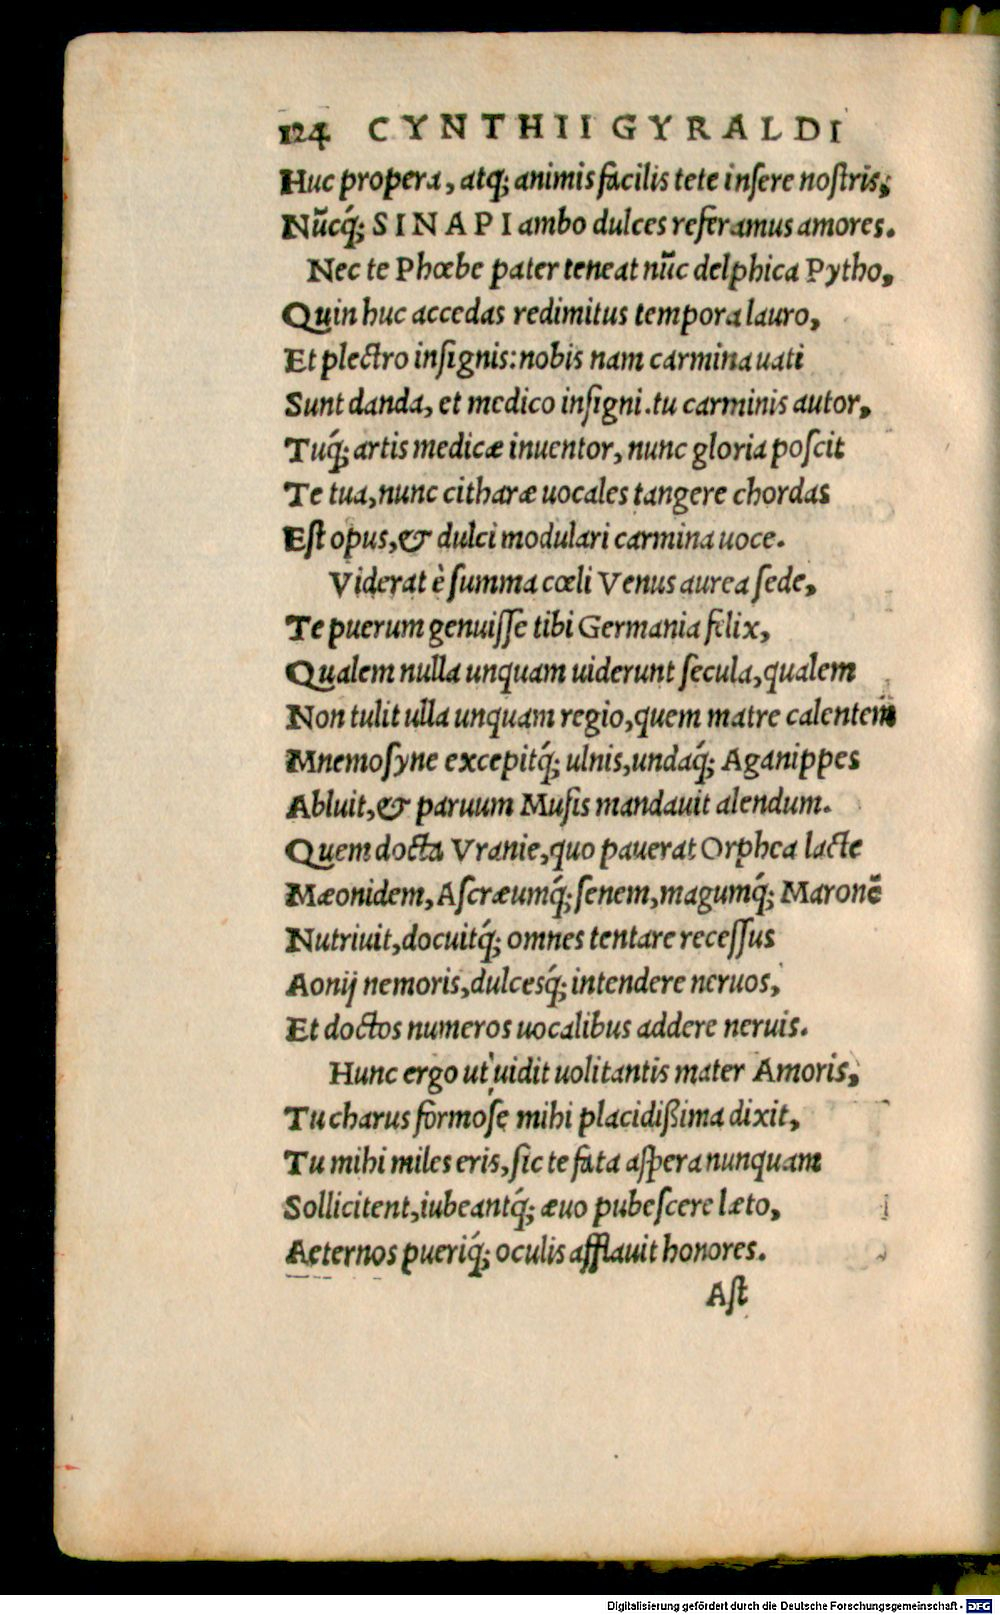 124 CYNTHII GYRALDI
Huc propera, atq́; animis facilis tete inſere noſtris;
Nũcq́; SINAPI ambo dulces referamus amores.
Nec te Phœbe pater teneat nũc delphica Pytho,
Quin huc accedas redimitus tempora lauro,
Et plectro inſignis: nobis nam carmina uati
Sunt danda, et medico inſigni. tu carminis autor,
Tuq́; artis medicæ inuentor, nunc gloria poſcit
Te tua, nunc citharæ uocales tangere chordas
Eſt opus, & dulci modulari carmina uoce.
Viderat è ſumma cœli Venus aurea ſede,
Te puerum genuiſſe tibi Germania felix,
Qualem nulla unquam uiderunt ſecula, qualem
Non tulit ulla unquam regio, quem matre calentem
Mnemoſyne excepitq́; ulnis, undaq́; Aganippes
Abluit, & paruum Muſis mandauit alendum.
Quem docta Vranie, quo pauerat Orphea lacte
Mæonidem, Aſcræumq́; ſenem, magumq́; Maronẽ
Nutriuit, docuitq́; omnes tentare receſſus
Aonij nemoris, dulcesq́; intendere neruos,
Et doctos numeros uocalibus addere neruis.
Hunc ergo ut uidit uolitantis mater Amoris,
Tu charus formoſe mihi placidißima dixit,
Tu mihi miles eris, ſic te fata aſpera nunquam
Sollicitent, iubeantq́; æuo pubeſcere læto,
Aeternos pueriq́; oculis afflauit honores.
Aſt
Digitalisierung gefördert durch die Deutsche Forschungsgemeinschaft - DFG